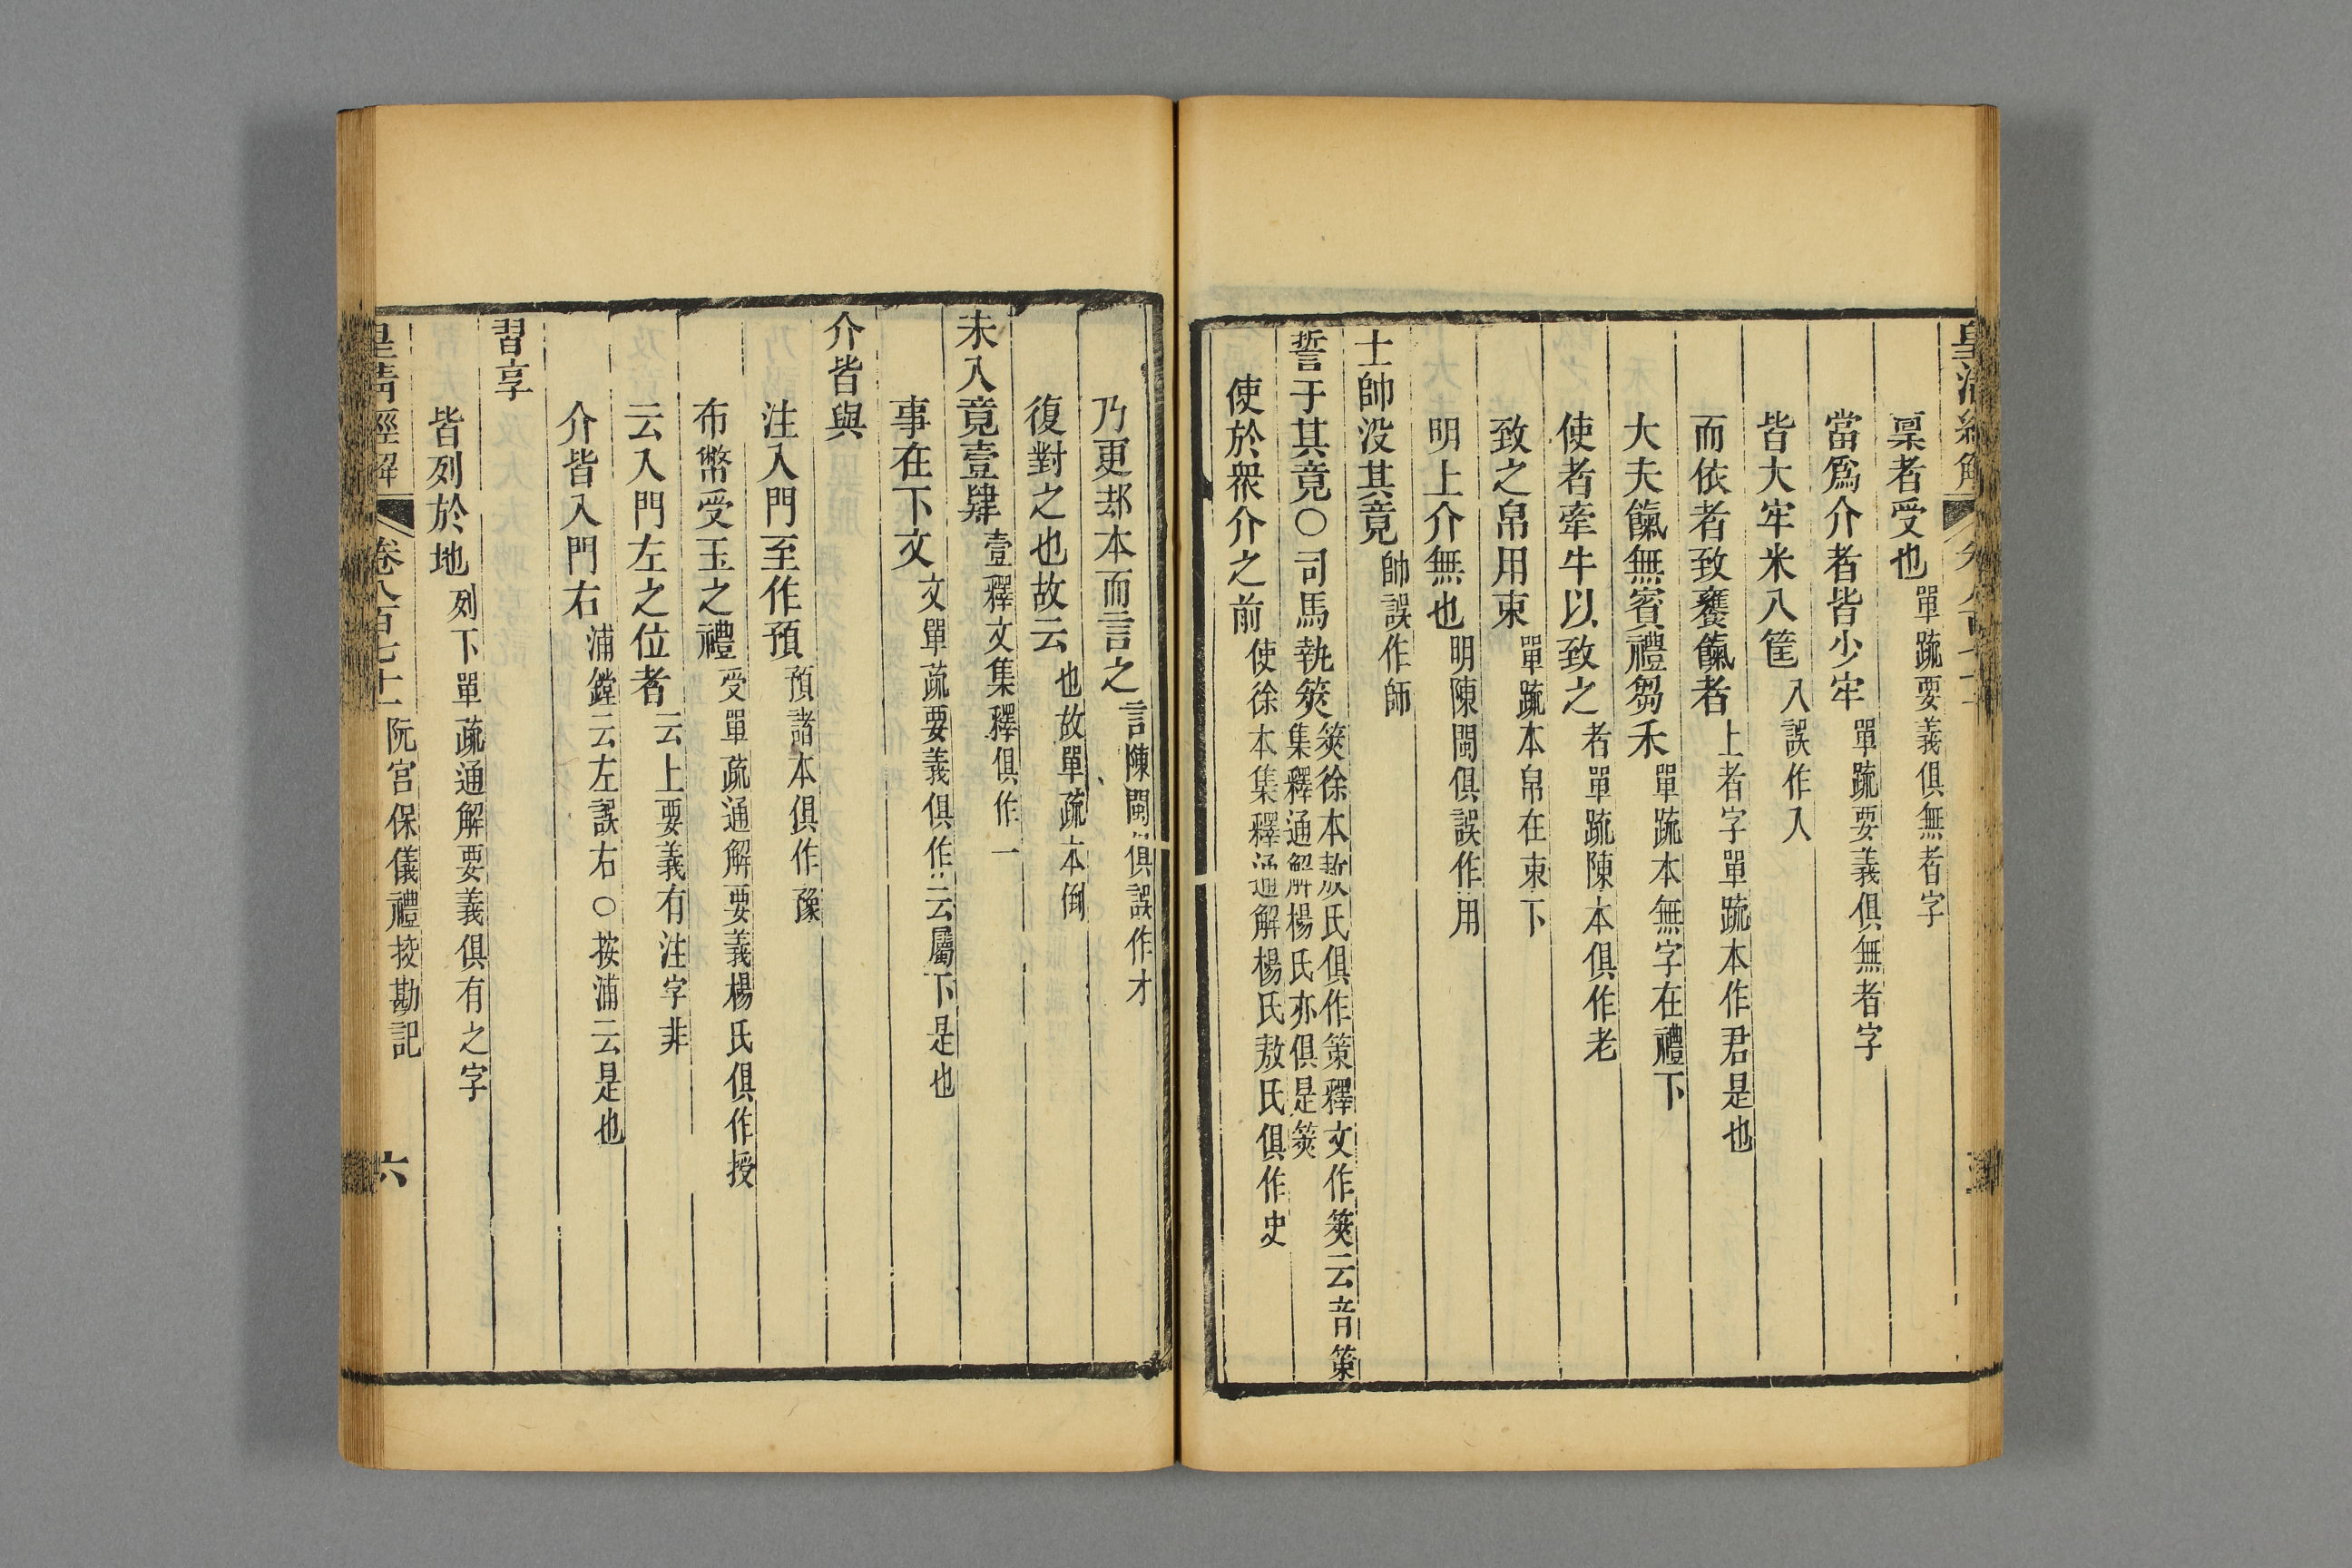 皇清經解
稟者受也單疏要義俱無者字
當爲介者皆少牢單疏要義俱無者字
皆大牢米八筐八誤作入
而依者致饔餼者上者字單疏本作君是也
大夫餼無賓禮芻禾單疏本無字在禮下
使者牽牛以致之者單疏陳本俱作老
致之帛用束單疏本帛在束下
明上介無也明陳閩俱誤作用
士帥没其竟帥誤作師
誓于其竟〇司馬執筴筴徐本敖氏俱作策釋文作筴云音策
集釋通解楊氏亦俱是筴
使於衆介之前使徐本集釋通解楊氏敖氏俱作史
乃更却本而言之言陳閩俱誤作才
復對之也故云也故單疏本倒
未入竟壹肄壹釋文集釋俱作一
事在下文文單疏要義俱作云屬下是也
介皆與
注入門至作預預諸本俱作豫
布幣受玉之禮受單疏通解要義楊氏俱作授
云入門左之位者云上要義有注字非
介皆入門右浦鏜云左誤右〇按浦云是也
習享
皆列於地列下單疏通解要義俱有之字
皇清經解 卷八百七十一阮宫保儀禮挍勘記 六